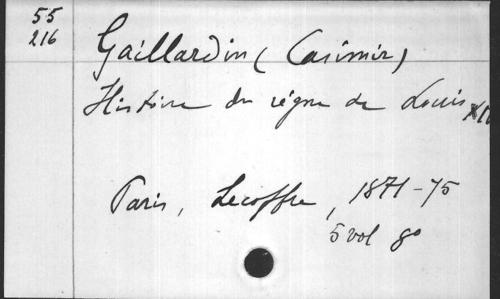 55
216
Gaillardin (Casimir)
Histoire du règne de Louis XIV
Paris, Lecoffre, 1871-75
5 vol 8o